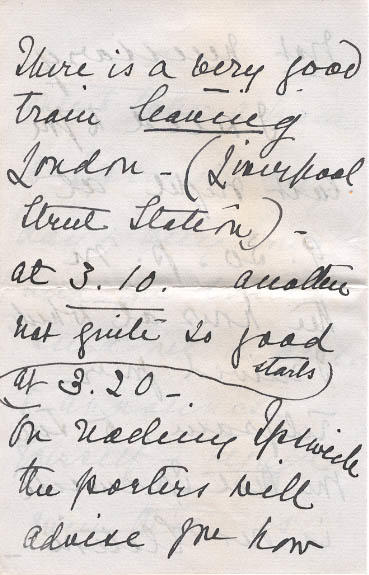 There is a very good
train leaving
London - (Liverpool
Street Station) -
at 3.10. another
not quite so good
starts
at 3.20 -
On reaching Ipswich
the porters will
advise you how